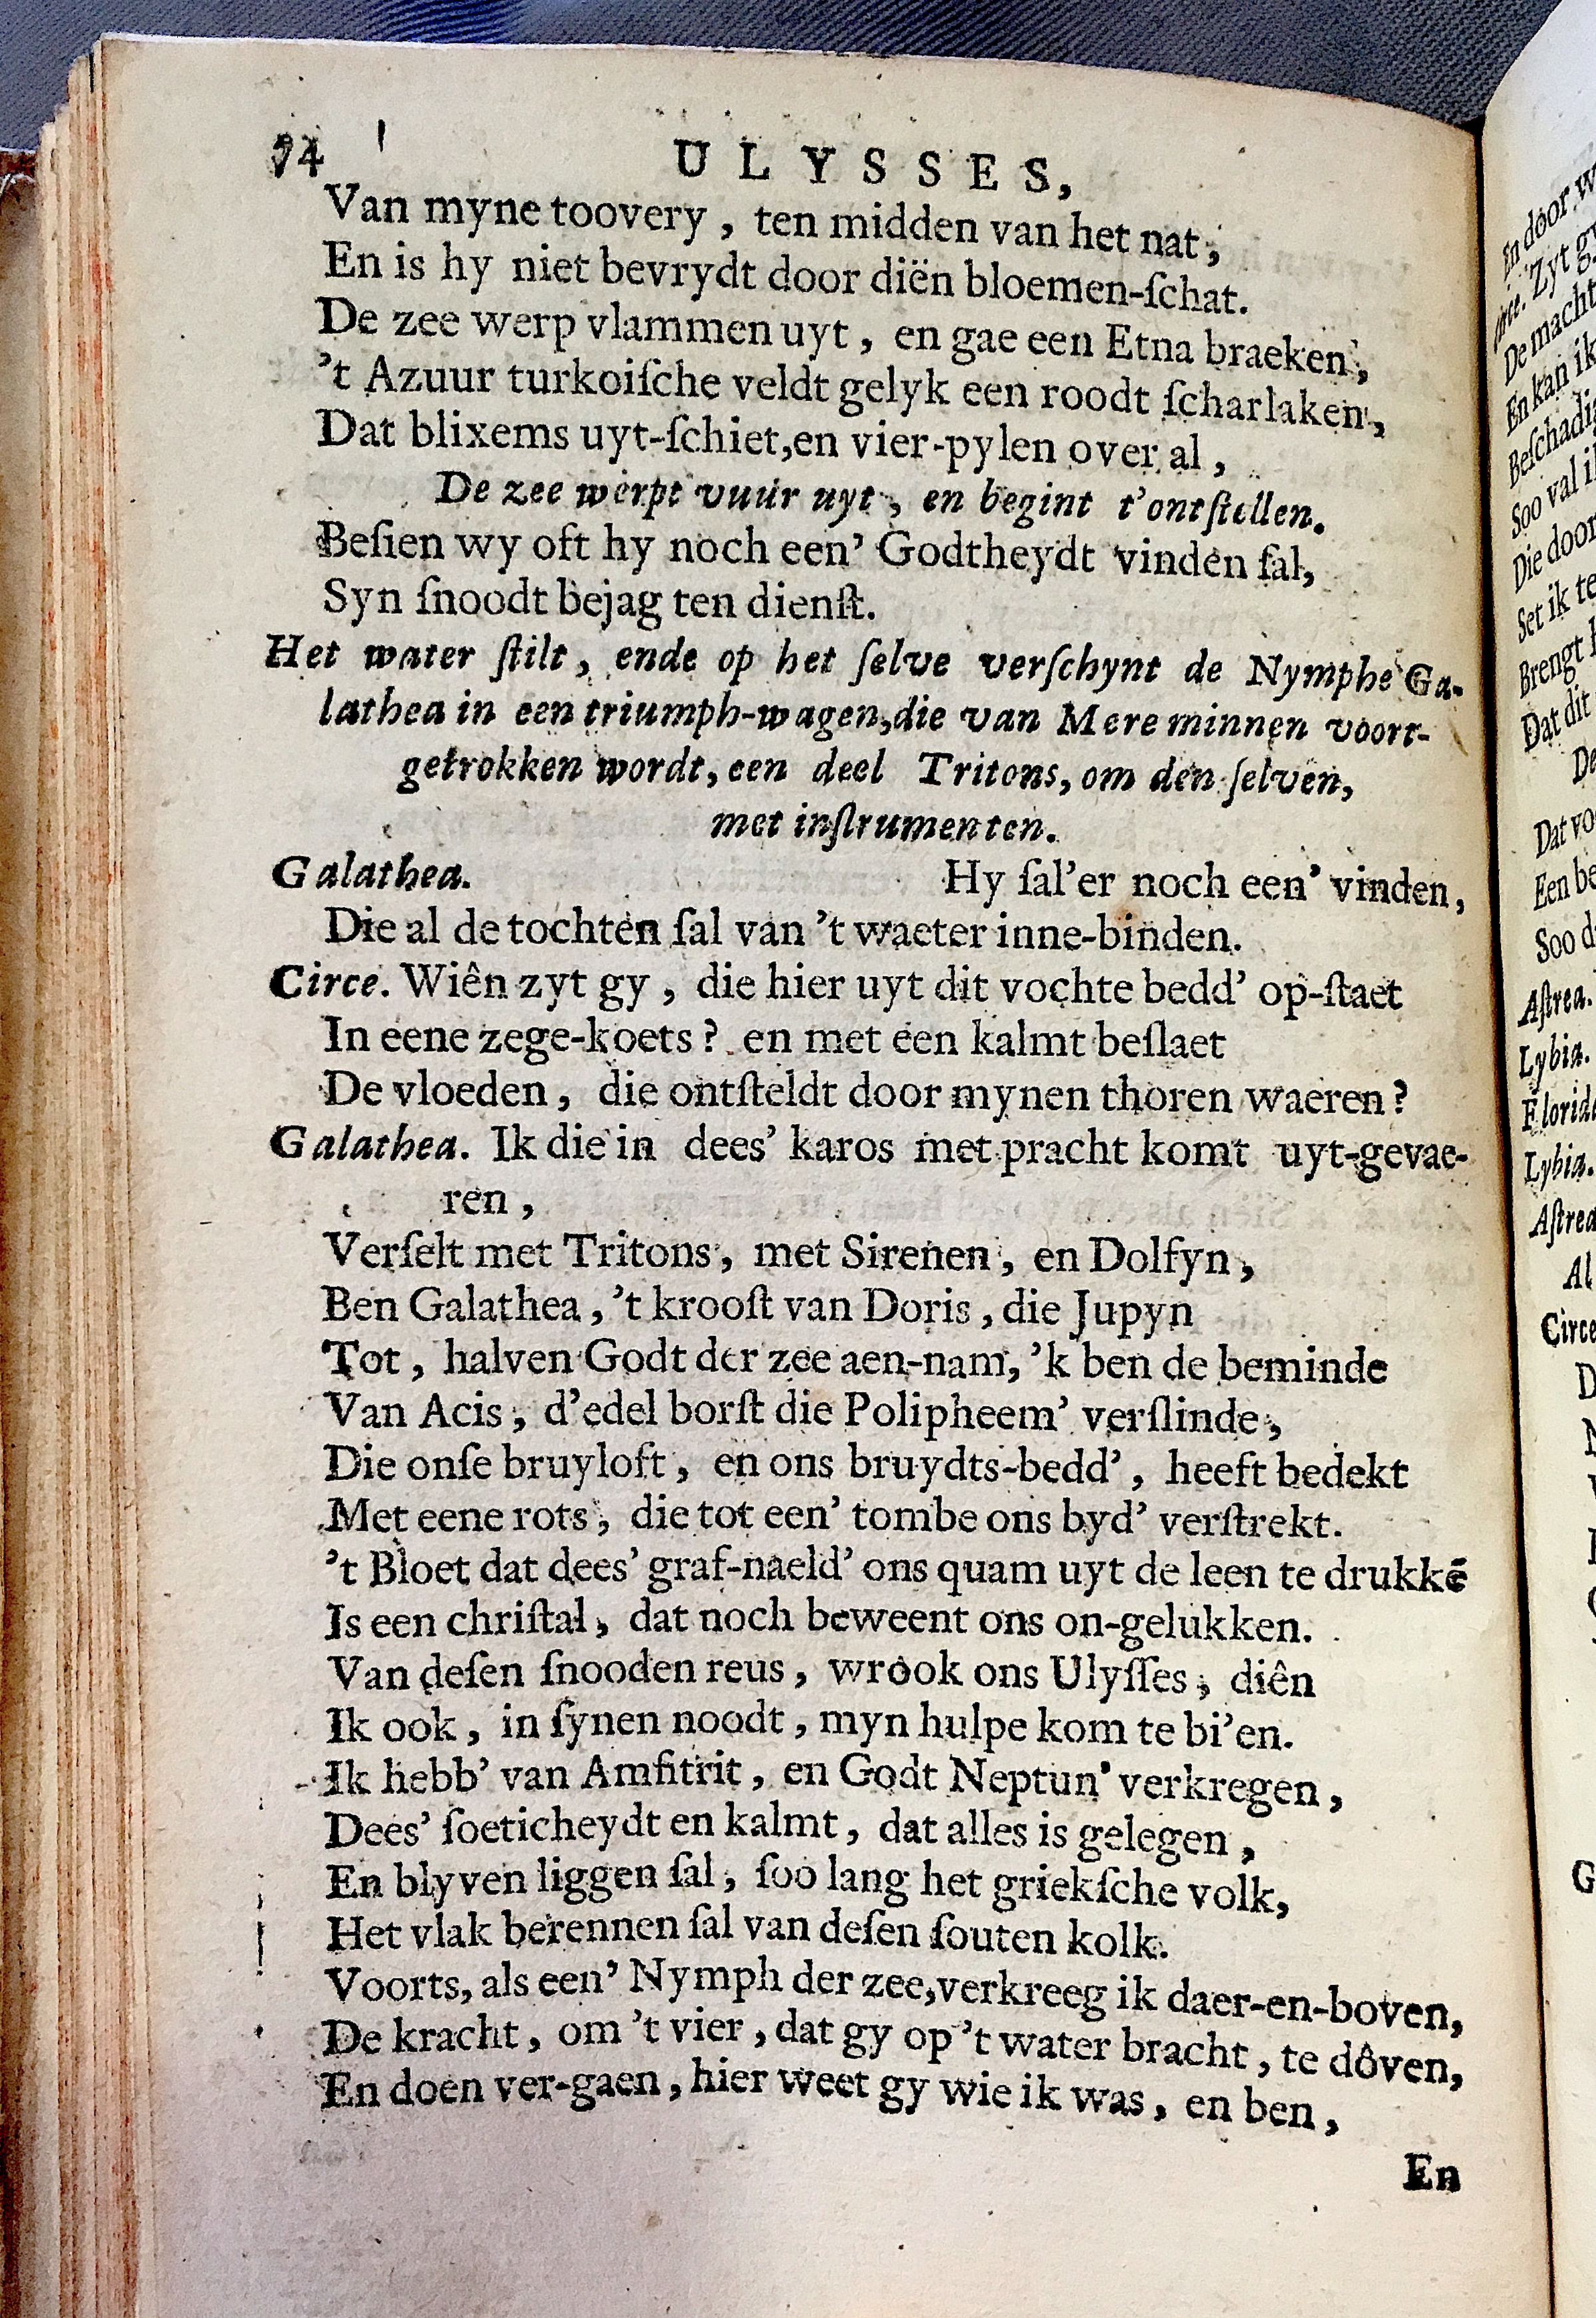 94
ULYSSES,
Van myne toovery, ten midden van het nat,
En is hy niet bevrydt door diën bloemen-ſchat.
De zee werp vlammen uyt, en gae een Etna braeken,
't Azuur turkoiſche veldt gelyk een roodt ſcharlaken,
Dat blixems uyt-ſchiet, en vier-pylen over al,
De zee werpt vuur uyt, en begint t'ontſtellen.
Beſien wy oft hy noch een' Godtheydt vinden ſal,
Syn ſnoodt bejag ten dienſt.
Het water ſtilt, ende op het ſelve verſchynt de Nymphe Ga-
lathea in een triumph-wagen, die van Mere minnen voort-
getrokken wordt, een deel Tritons, om den ſelven,
met inſtrumenten.
Galathea. Hy ſal'er noch een' vinden,
Die al de tochten ſal van 't waeter inne-binden.
Circe. Wiên zyt gy, die hier uyt dit vochte bedd' op-ſtaet
In eene zege-koets? en met een kalmt beſlaet
De vloeden, die ontſteldt door mynen thoren waeren?
Galathea. Ik die in dees' karos met pracht komt uyt-gevae-
ren,
Verſelt met Tritons, met Sirenen, en Dolfyn,
Ben Galathea, 't krooſt van Doris, die Jupyn
Tot, halven Godt der zee aen-nam, 'k ben de beminde
Van Acis, d'edel borſt die Polipheem' verſlinde,
Die onſe bruyloft, en ons bruydts-bedd', heeft bedekt
Met eene rots, die tot een' tombe ons byd' verſtrekt.
't Bloet dat dees' graf-naeld' ons quam uyt de leen te drukkē
Is een chriſtal, dat noch beweent ons on-gelukken.
Van deſen ſnooden reus, wrôok ons Ulyſſes, diên
Ik ook, in ſynen noodt, myn hulpe kom te bi'en.
Ik hebb' van Amfitrit, en Godt Neptun' verkregen,
Dees' ſoeticheydt en kalmt, dat alles is gelegen,
En blyven liggen ſal, ſoo lang het griekſche volk,
Het vlak berennen ſal van deſen ſouten kolk.
Voorts, als een' Nymph der zee, verkreeg ik daer-en-boven,
De kracht, om 't vier, dat gy op 't water bracht, te dôven,
En doen ver-gaen, hier weet gy wie ik was, en ben,
En
En door
Circe. Zyt gy
De macht
En kan ik
Beſchadig
Soo val i
Die door
Set ik te
Brengt
Dat dit
De
Dat vo
Een be
Soo d
Aſtrea.
Lybia.
Florida
Lybia.
Aſtrea
Al
Circe
D
G